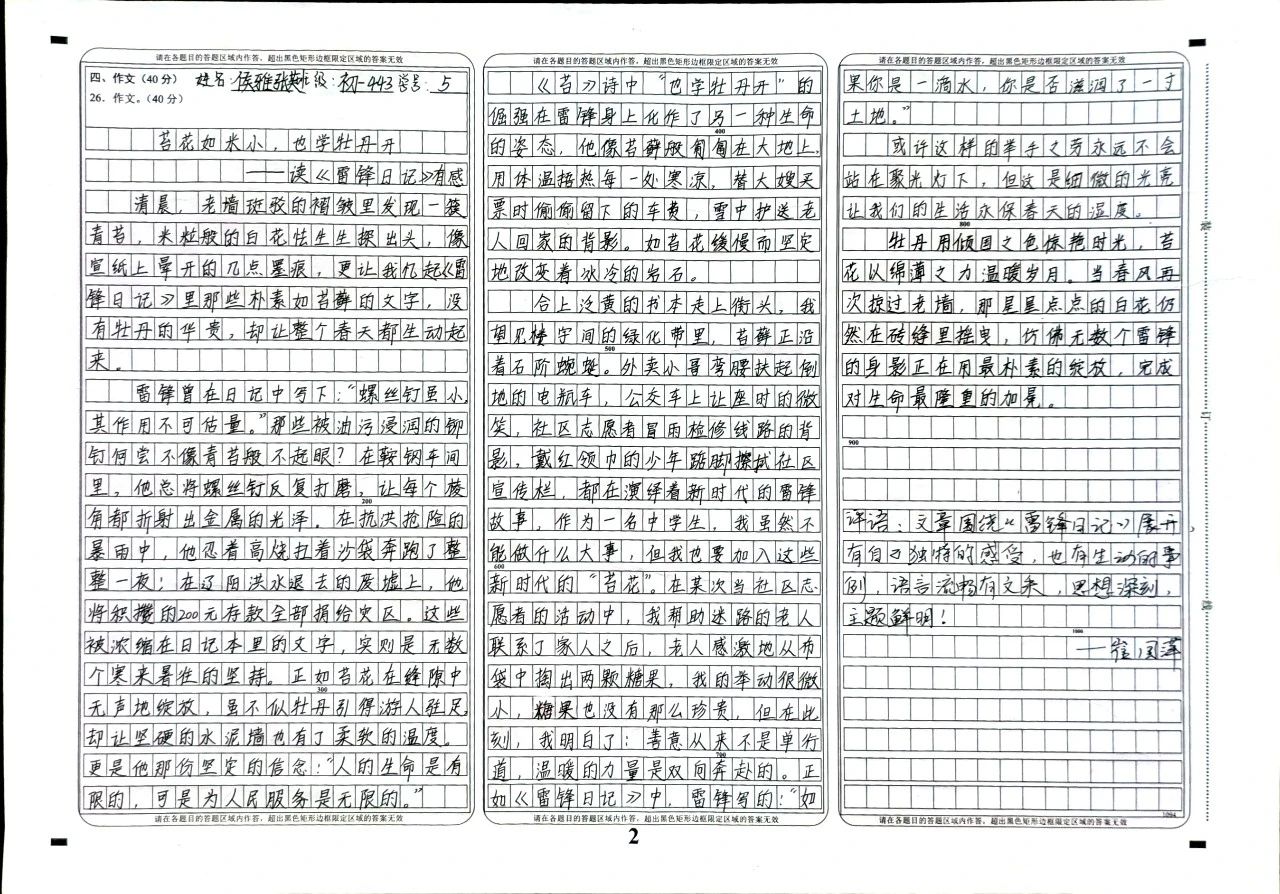 请在各题目的答题区域内作答，超出黑色矩形边框限定区域的答案无效
四、作文（40分） 姓名：侯雅张 班级：初一443 学号：5
26. 作文。（40分）
苔花如米小，也学牡丹开
——读《雷锋日记》有感
清晨，老墙斑驳的褶皱里发现一簇
青苔，米粒般的白花怯生生探出头，像
宣纸上晕开的几点墨痕，更让我忆起《雷
锋日记》里那些朴素如苔藓的文字，没
有牡丹的华贵，却让整个春天都生动起
来。
雷锋曾在日记中写下：“螺丝钉虽小，
其作用不可估量。”那些被油污浸润的铆
钉何尝不像青苔般不起眼？在鞍钢车间
里，他总将螺丝钉反复打磨，让每个棱
200
角都折射出金属的光泽。在抗洪抢险的
暴雨中，他忍着高烧扛着沙袋奔跑了整
整一夜；在辽阳洪水退去的废墟上，他
将积攒的200元存款全部捐给灾区。这些
被浓缩在日记本里的文字，实则是无数
个寒来暑往的坚持。正如苔花在缝隙中
300
无声地绽放，虽不似牡丹引得游人驻足，
却让坚硬的水泥墙也有了柔软的温度。
更是他那份坚定的信念：“人的生命是有
限的，可是为人民服务是无限的。”
请在各题目的答题区域内作答，超出黑色矩形边框限定区域的答案无效
请在各题目的答题区域内作答，超出黑色矩形边框限定区域的答案无效
《苔》诗中“也学牡丹开”的
倔强在雷锋身上化作了另一种生命
400
的姿态，他像苔藓般匍匐在大地上，
用体温捂热每一处寒凉，替大嫂买
票时偷偷留下的车费，雪中护送老
人回家的背影。如苔花缓慢而坚定
地改变着冰冷的岩石。
合上泛黄的书本走上街头，我
望见楼宇间的绿化带里，苔藓正沿
500
着石阶蜿蜒。外卖小哥弯腰扶起倒
地的电瓶车，公交车上让座时的微
笑，社区志愿者冒雨检修线路的背
影，戴红领巾的少年踮脚擦拭社区
宣传栏，都在演绎着新时代的雷锋
故事，作为一名中学生，我虽然不
能做什么大事，但我也要加入这些
600
新时代的“苔花”。在某次当社区志
愿者的活动中，我帮助迷路的老人
联系了家人之后，老人感激地从布
袋中掏出两颗糖果，我的举动很微
小，糖果也没有那么珍贵，但在此
刻，我明白了：善意从来不是单行
700
道，温暖的力量是双向奔赴的。正
如《雷锋日记》中，雷锋写的：“如
请在各题目的答题区域内作答，超出黑色矩形边框限定区域的答案无效
2
请在各题目的答题区域内作答，超出黑色矩形边框限定区域的答案无效
果你是一滴水，你是否滋润了一寸
土地。”
或许这样的举手之劳永远不会
站在聚光灯下，但这是细微的光亮
让我们的生活永保春天的温度。
800
牡丹用倾国之色惊艳时光，苔
花以绵薄之力温暖岁月。当春风再
次掠过老墙，那星星点点的白花仍
然在砖缝里摇曳，仿佛无数个雷锋
的身影正在用最朴素的绽放，完成
对生命最隆重的加冕。
900
评语：文章围绕《雷锋日记》展开，
有自己独特的感受，也有生动的事
例，语言流畅有文采，思想深刻，
主题鲜明！
1000
——崔国萍
1094
请在各题目的答题区域内作答，超出黑色矩形边框限定区域的答案无效
装
订
线